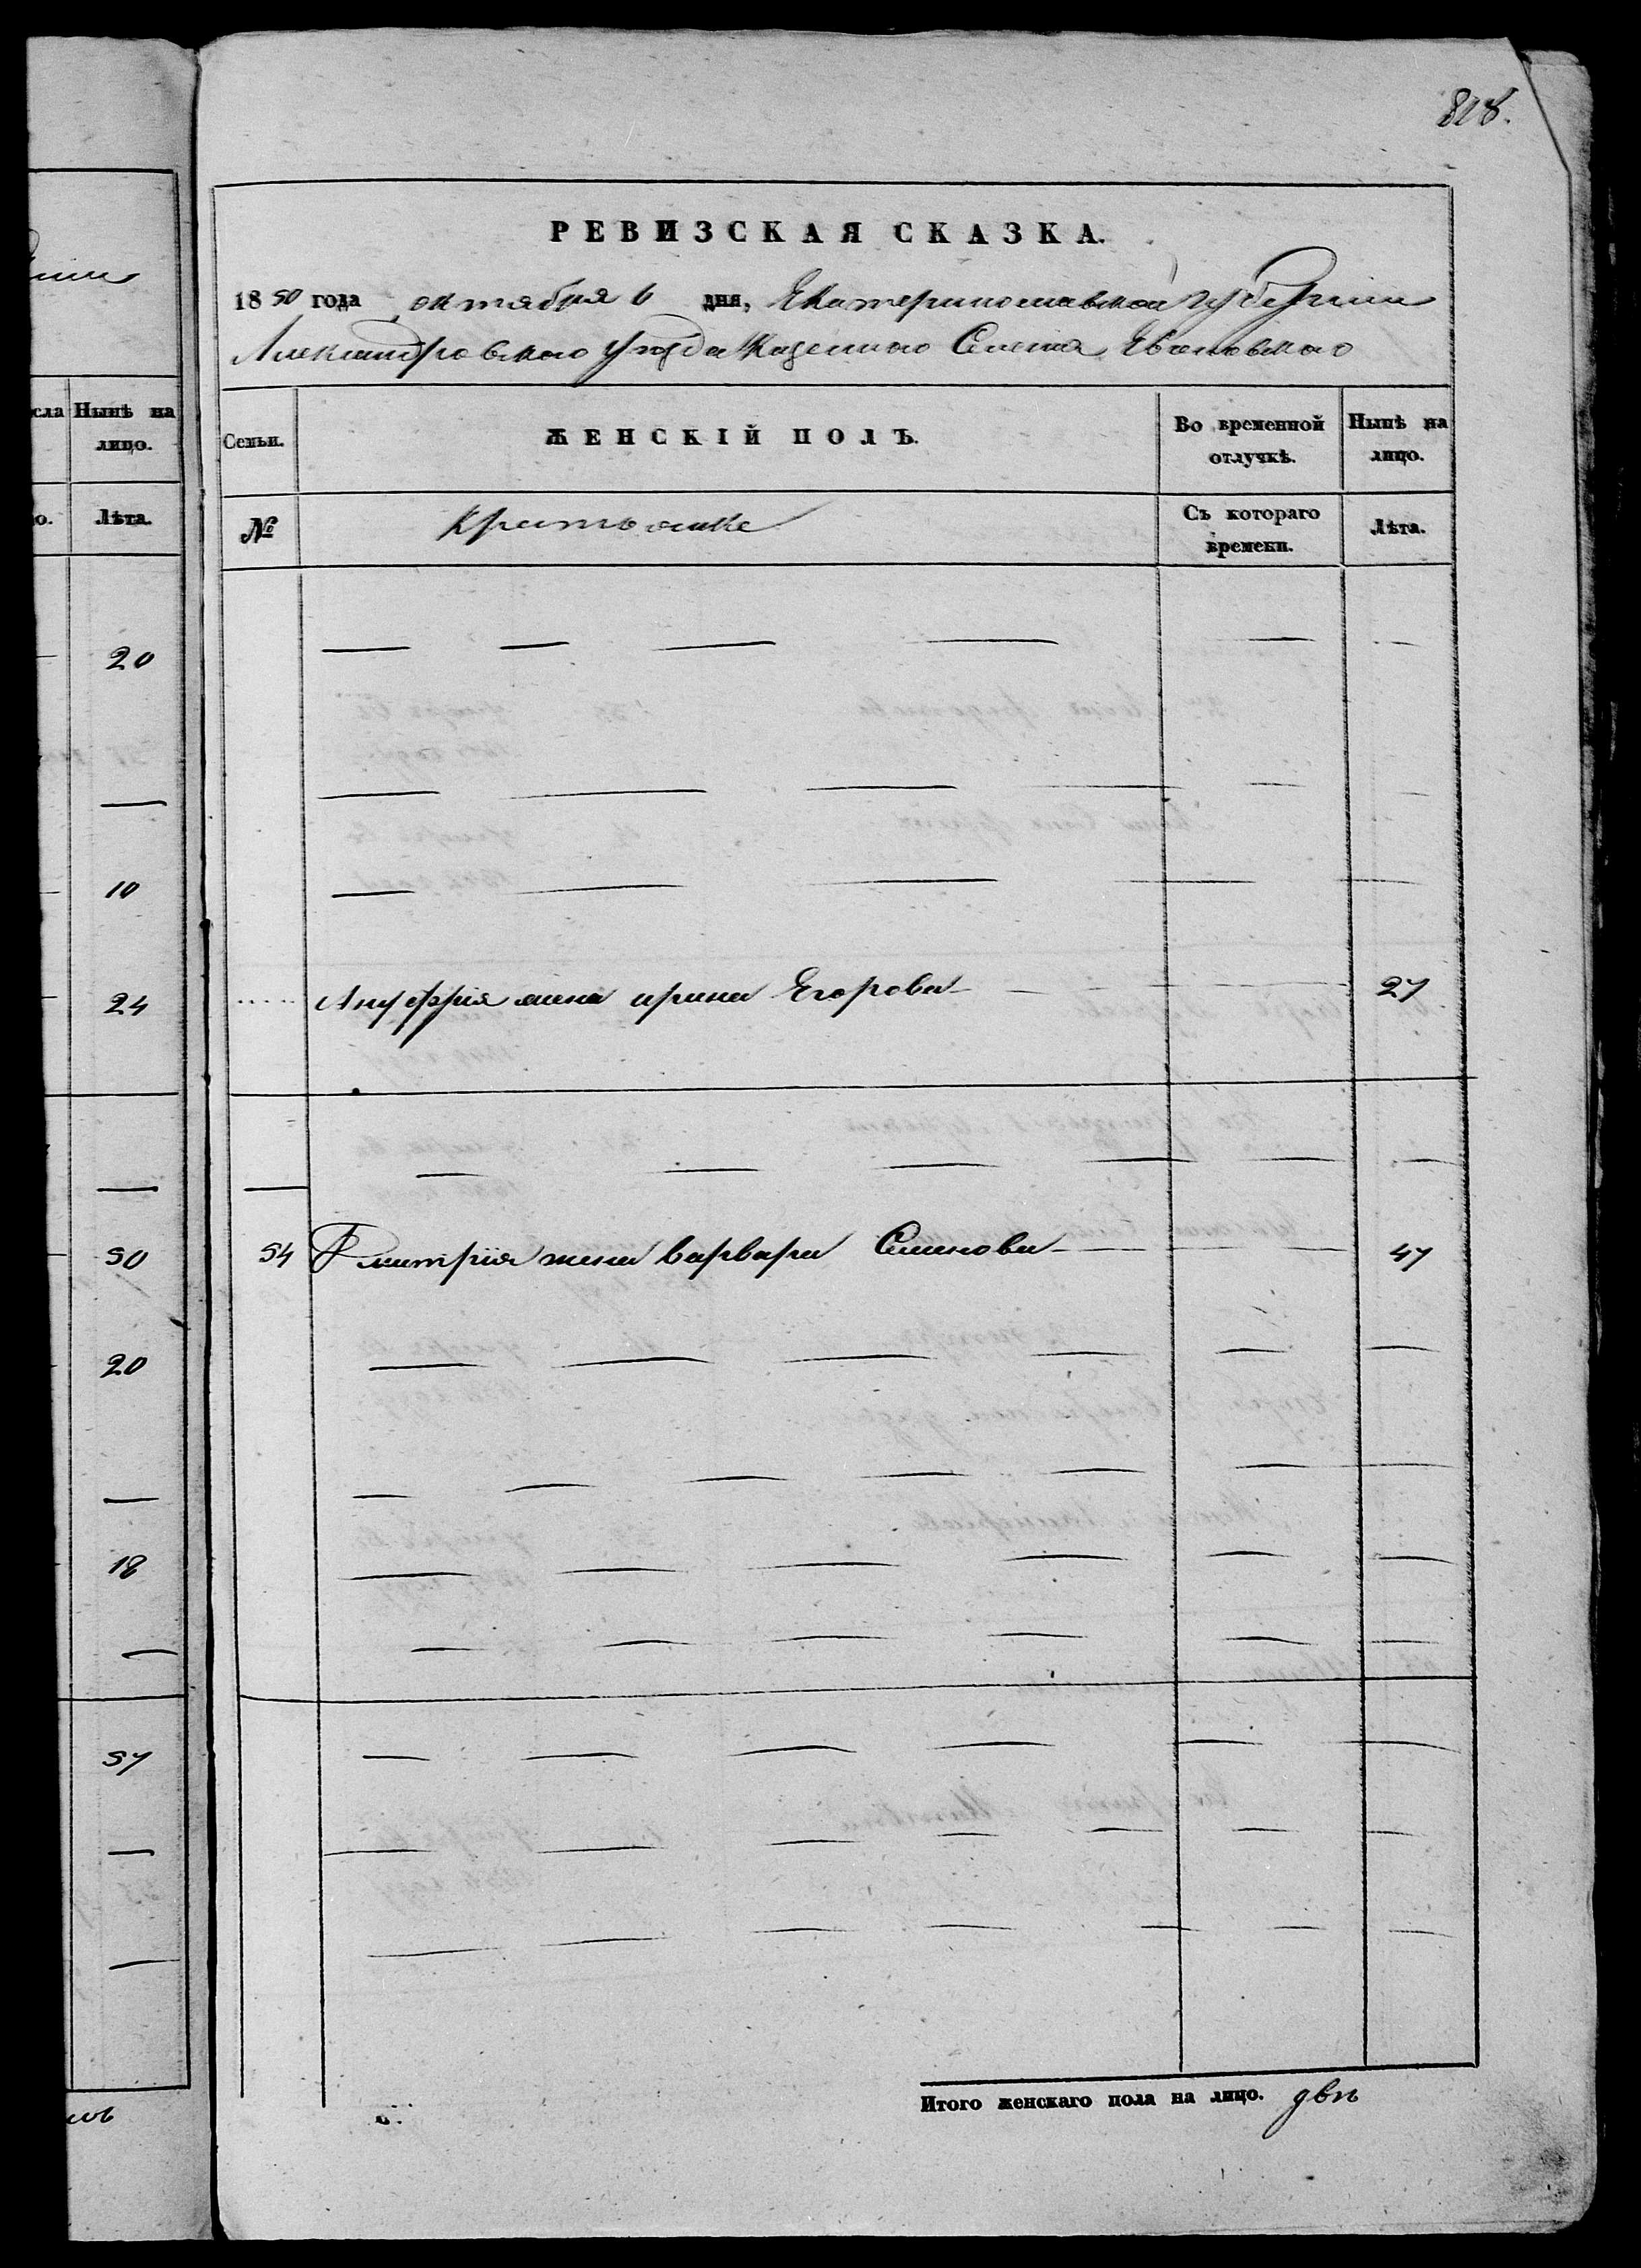 818.
РЕВИЗСКАЯ СКАЗКА.
1850 года октября 6 дня, Екатеринославской губернии
Александровского уезда Казенного Селения Ивановского
сла Нынѣ на лицо.
о. Лѣта.
20
—
10
24
—
50
20
—
18
—
57
—
—
Семьи. ЖЕНСКІЙ ПОЛЪ. Во временной отлучкѣ. Нынѣ на лицо.
№ Съ котораго времени. Лѣта.
Ануфрія жена ирина Егорова 27
54 Дмитрія жена варвара Семенова 47
Итого женскаго пола на лицо. двѣ